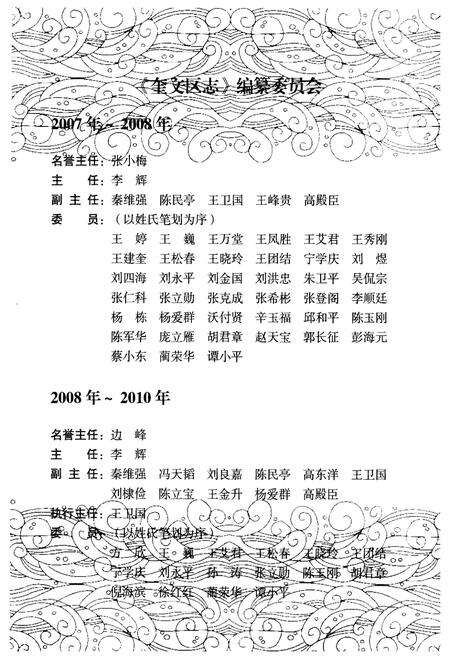 《奎文区志》编纂委员会
2007年～2008年
名誉主任：张小梅
主　　任：李　辉
副 主 任：秦维强　陈民亭　王卫国　王峰贵　高殿臣
委　　员：（以姓氏笔划为序）
王　婷　王　巍　王万堂　王凤胜　王艾君　王秀刚
王建奎　王松春　王晓玲　王团结　宁学庆　刘　煜
刘四海　刘永平　刘金国　刘洪忠　朱卫平　吴侃宗
张仁科　张立勋　张克成　张希彬　张登阁　李顺廷
杨　栋　杨爱群　沃付贤　辛玉福　邱和平　陈玉刚
陈军华　庞立雁　胡君章　赵天宝　郭长征　彭海元
蔡小东　蔺荣华　谭小平
2008年～2010年
名誉主任：边　峰
主　　任：李　辉
副 主 任：秦维强　冯天韬　刘良嘉　陈民亭　高东洋　王卫国
刘棣俭　陈立宝　王金升　杨爱群　高殿臣
执行主任：王卫国
委　　员：（以姓氏笔划为序）
方　成　王　巍　王艾君　王松春　王晓玲　王团结
宁学庆　刘永平　孙　涛　张立勋　陈玉刚　胡君章
倪海滨　徐红红　蔺荣华　谭小平